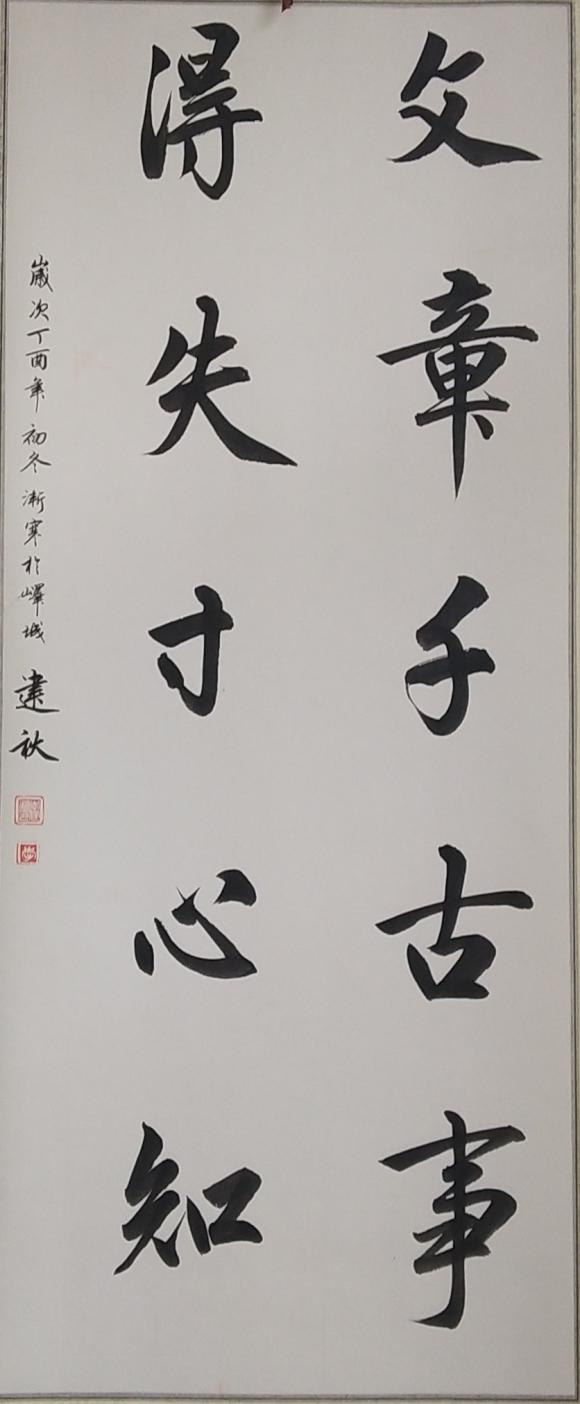 文章千古事
得失寸心知
歲次丁酉年初冬漸寒於嶧城 建秋